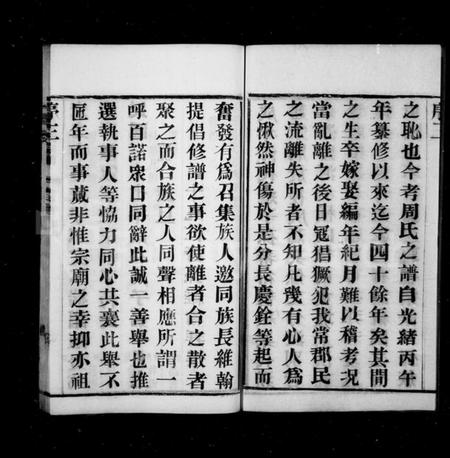 之恥也今考周氏之譜自光緒丙午
年纂修以來迄今四十餘年矣其間
之生卒嫁娶編年紀月難以稽考况
當亂離之後日冦猖獗犯我常郡民
之流離失所者不知凡幾有心人爲
之愀然神傷於是分長慶銓等起而
奮發有爲召集族人邀同族長維翰
提倡修譜之事欲使離者合之散者
聚之而合族之人同聲相應所謂一
呼百諾衆口同辭此誠一善舉也推
選執事人等恊力同心共襄此舉不
匝年而事蕆非惟宗廟之幸抑亦祖
序三